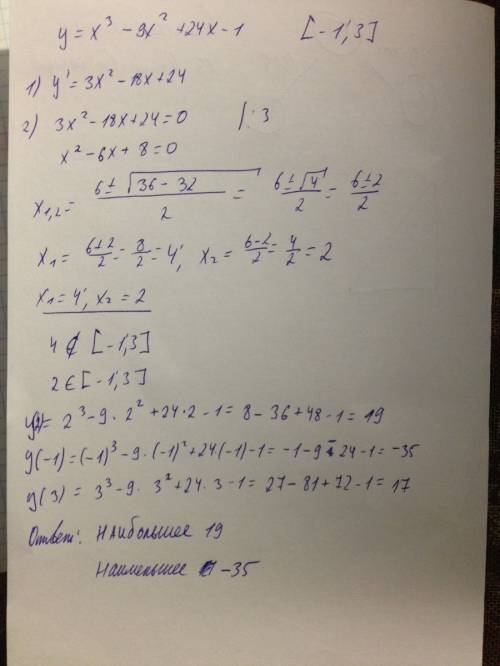 y = x³ - 9x² + 24x - 1 [-1;3]
1) y' = 3x² - 18x + 24
2) 3x² - 18x + 24 = 0 |: 3
x² - 6x + 8 = 0
x₁,₂ = (6 ± √(36 - 32))/2 = (6 ± √4)/2 = (6 ± 2)/2
x₁ = (6+2)/2 = 8/2 = 4; x₂ = (6-2)/2 = 4/2 = 2
x₁ = 4; x₂ = 2
4 ∉ [-1;3]
2 ∈ [-1;3]
y(2) = 2³ - 9 · 2² + 24 · 2 - 1 = 8 - 36 + 48 - 1 = 19
y(-1) = (-1)³ - 9 · (-1)² + 24(-1) - 1 = -1 - 9 - 24 - 1 = -35
y(3) = 3³ - 9 · 3² + 24 · 3 - 1 = 27 - 81 + 72 - 1 = 17
Ответ: Наибольшее 19
Наименьшее -35